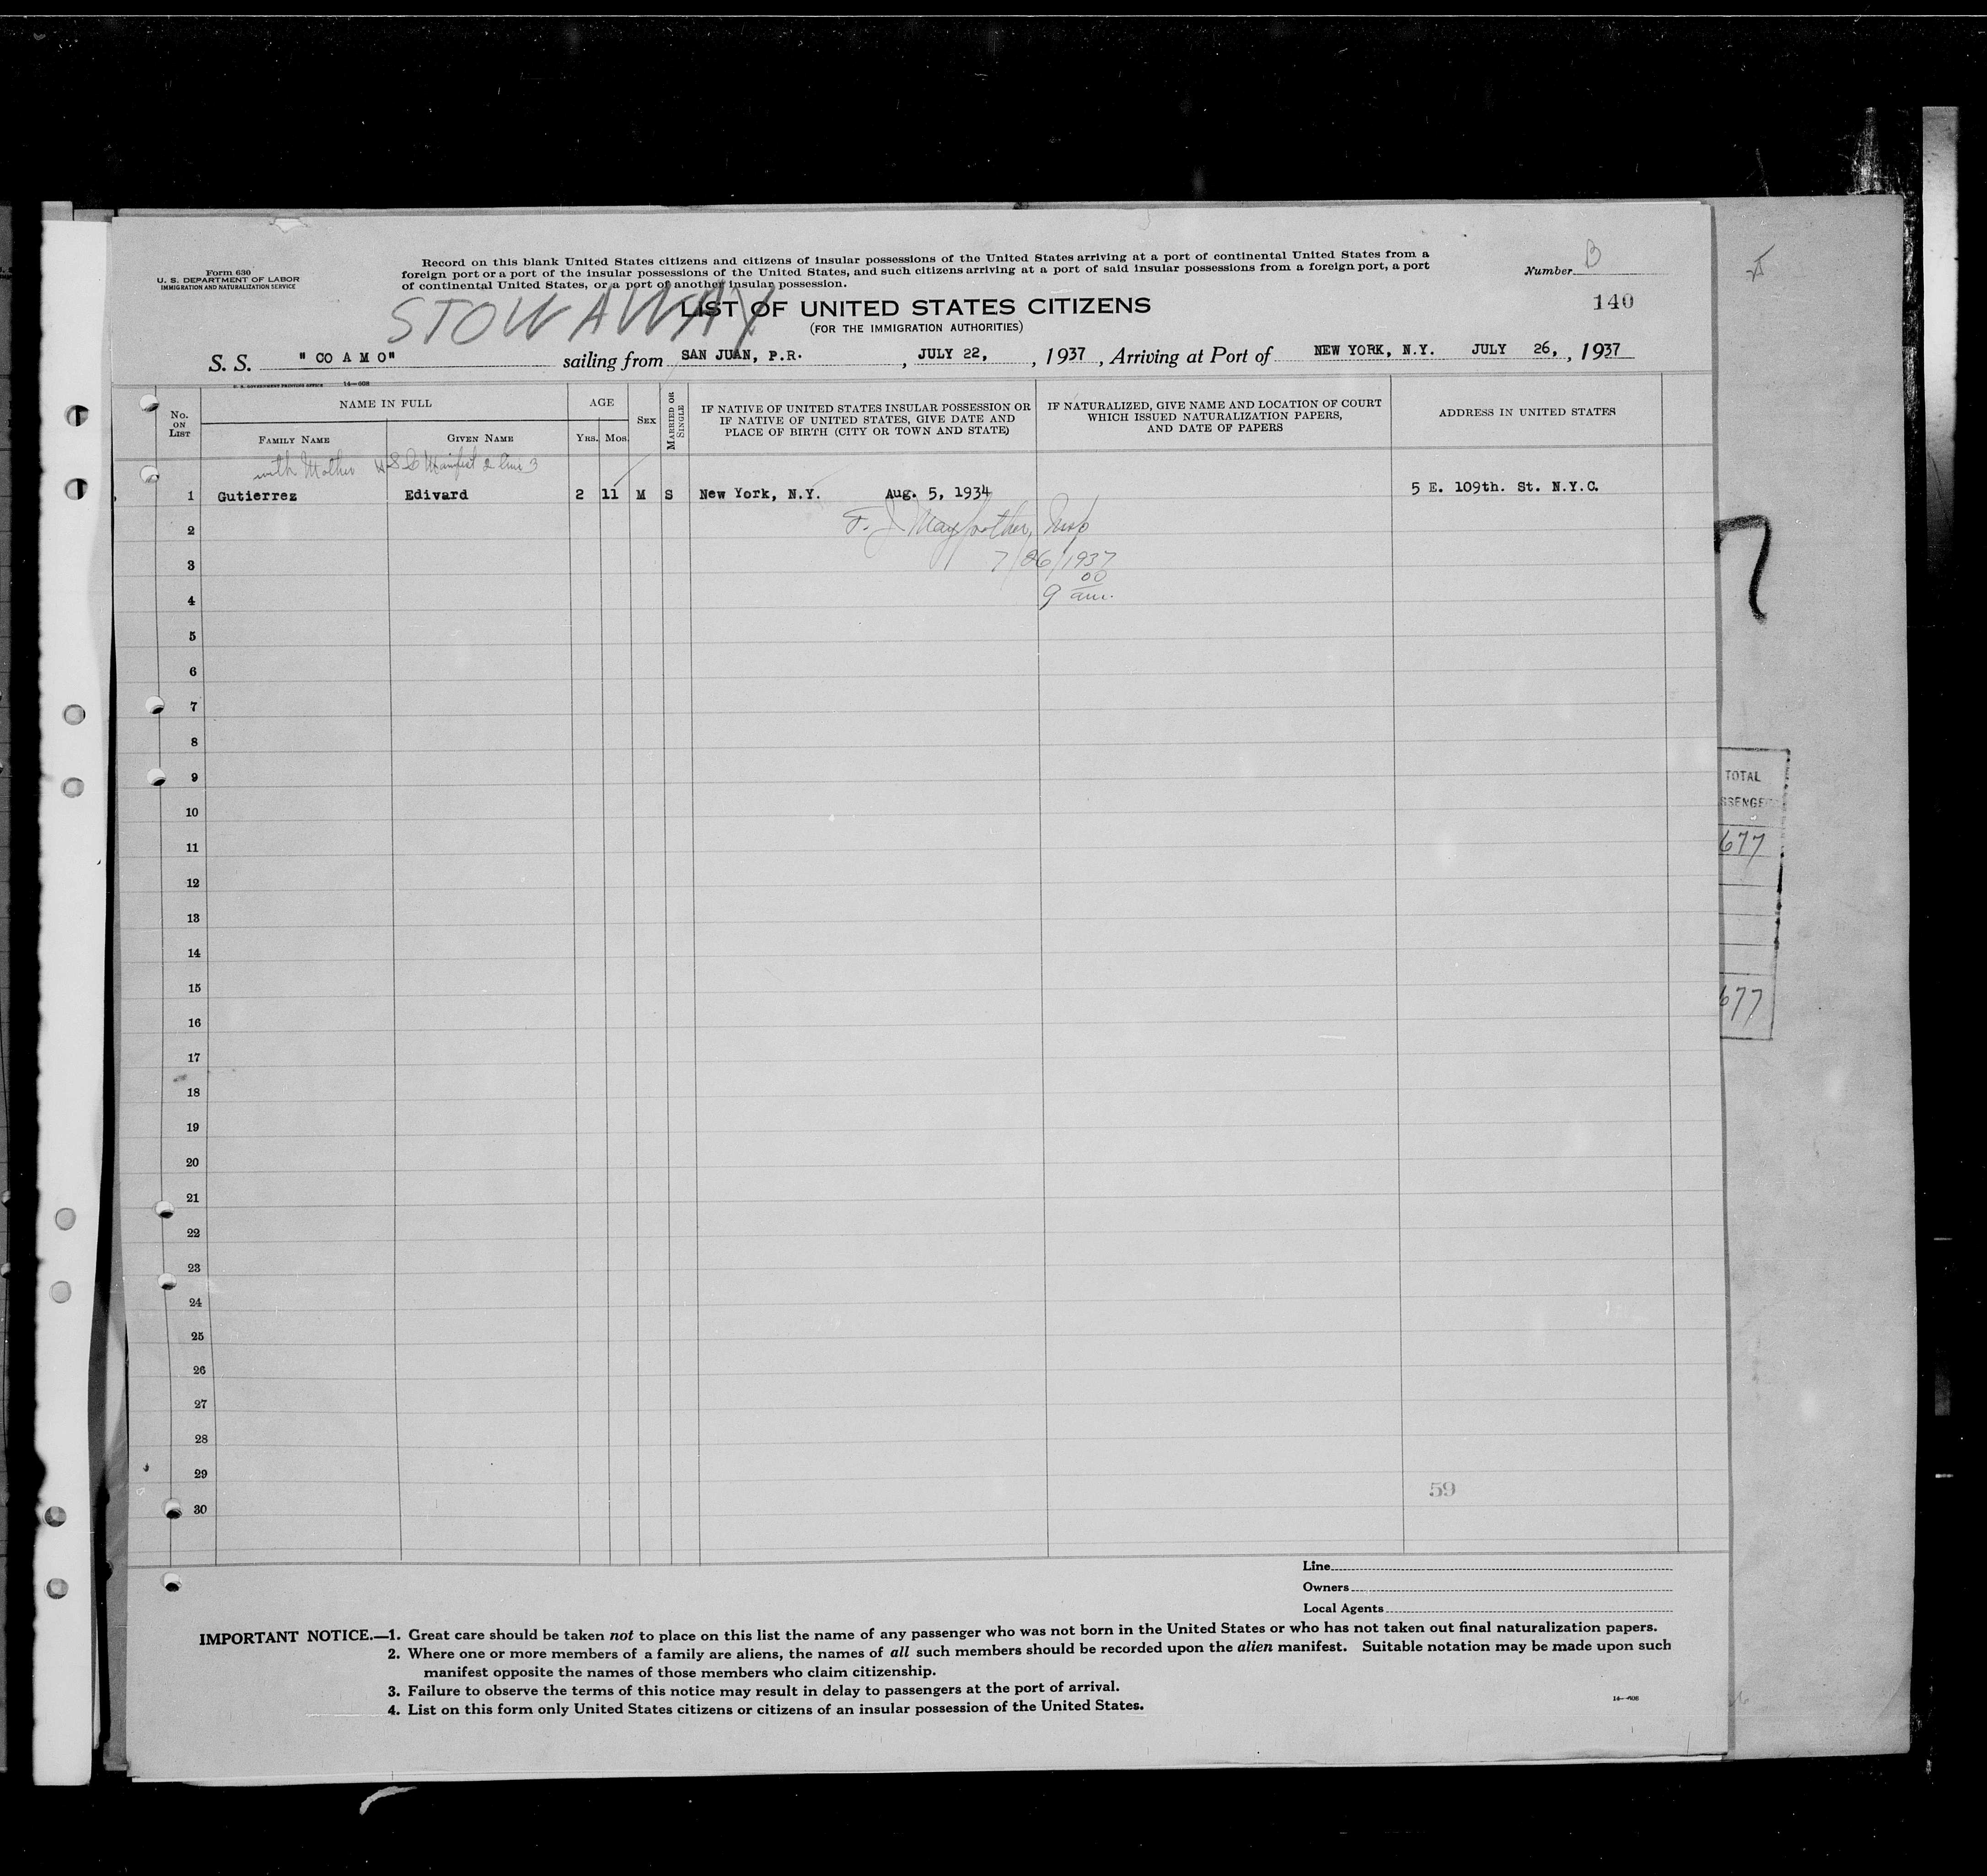 Form 630
U. S. DEPARTMENT OF LABOR
IMMIGRATION AND NATURALIZATION SERVICE
Record on this blank United States citizens and citizens of insular possessions of the United States arriving at a port of continental United States from a
foreign port or a port of the insular possessions of the United States, and such citizens arriving at a port of said insular possessions from a foreign port, a port
of continental United States, or a port of another insular possession.
Number B
140
STOWAWAY
LIST OF UNITED STATES CITIZENS
(FOR THE IMMIGRATION AUTHORITIES)
S. S. " CO A M O" sailing from SAN JUAN, P.R. , JULY 22, , 1937 , Arriving at Port of NEW YORK, N.Y. JULY 26, , 1937
U. S. GOVERNMENT PRINTING OFFICE 14—608
No. ON LIST
NAME IN FULL
FAMILY NAME
GIVEN NAME
AGE
YRS. MOS.
SEX
MARRIED OR SINGLE
IF NATIVE OF UNITED STATES INSULAR POSSESSION OR
IF NATIVE OF UNITED STATES, GIVE DATE AND
PLACE OF BIRTH (CITY OR TOWN AND STATE)
IF NATURALIZED, GIVE NAME AND LOCATION OF COURT
WHICH ISSUED NATURALIZATION PAPERS,
AND DATE OF PAPERS
ADDRESS IN UNITED STATES
with Mother Manifest 2 line 3
1 Gutierrez Edivard 2 11 M S New York, N.Y. Aug. 5, 1934 5 E. 109th. St. N.Y.C.
2 F. J. Insp
3 7/26/1937
4 9 00 am.
5
6
7
8
9
10
11
12
13
14
15
16
17
18
19
20
21
22
23
24
25
26
27
28
29
59
30
Line
Owners
Local Agents
IMPORTANT NOTICE.—1. Great care should be taken not to place on this list the name of any passenger who was not born in the United States or who has not taken out final naturalization papers.
2. Where one or more members of a family are aliens, the names of all such members should be recorded upon the alien manifest. Suitable notation may be made upon such
manifest opposite the names of those members who claim citizenship.
3. Failure to observe the terms of this notice may result in delay to passengers at the port of arrival.
4. List on this form only United States citizens or citizens of an insular possession of the United States.
14—608
7
TOTAL
SSENGE
677
677